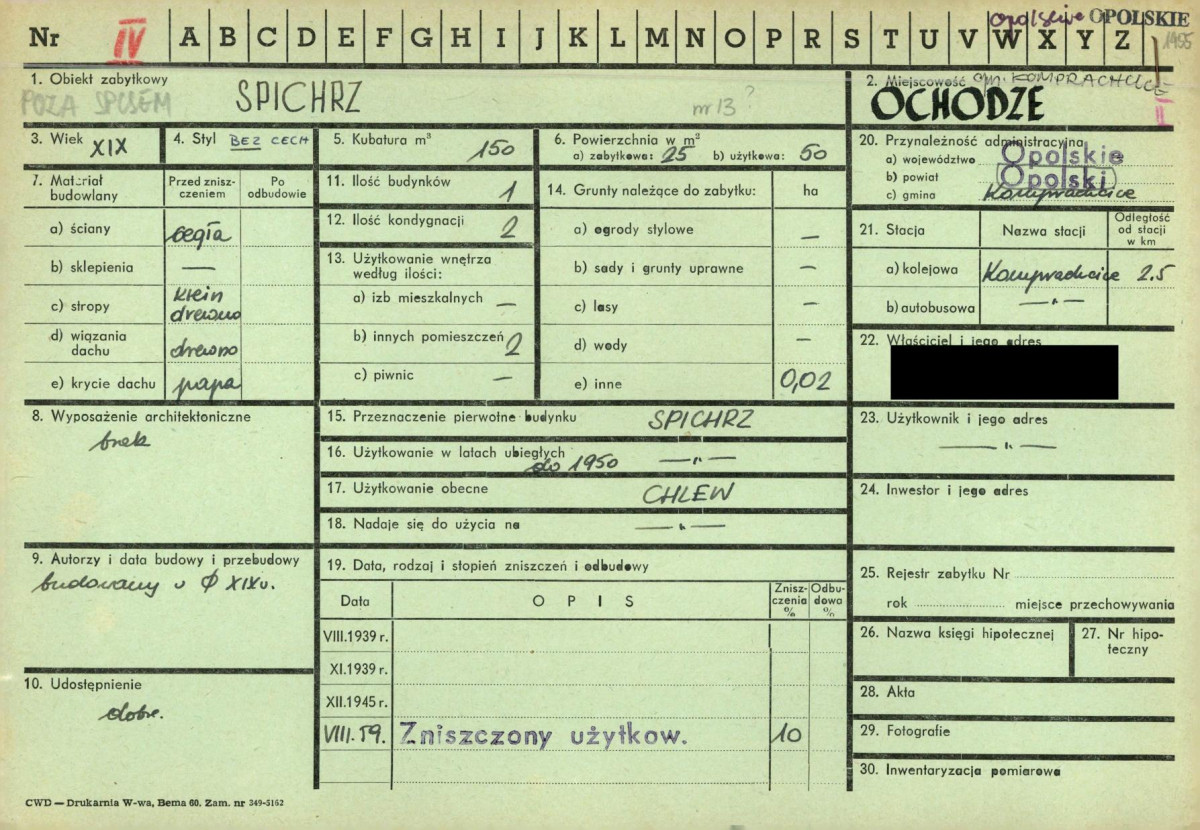 Nr IV A B C D E F G H I J K L M N O P R S T U V W X Y Z
opolskie OPOLSKIE
1455
1. Obiekt zabytkowy
SPICHRZ
POZA SPISEM
nr 13?
2. Miejscowość gm. KOMPRACHCICE
OCHODZE
3. Wiek XIX
4. Styl BEZ CECH
5. Kubatura m³ 150
6. Powierzchnia w m²
a) zabytkowa: 25 b) użytkowa: 50
20. Przynależność administracyjna
a) województwo Opolskie
b) powiat Opolski
c) gmina Komprachcice
7. Materiał budowlany
Przed zniszczeniem
Po odbudowie
a) ściany cegła
b) sklepienia —
c) stropy klein drewno
d) wiązania dachu drewno
e) krycie dachu papa
11. Ilość budynków 1
12. Ilość kondygnacji 2
13. Użytkowanie wnętrza według ilości:
a) izb mieszkalnych —
b) innych pomieszczeń 2
c) piwnic —
14. Grunty należące do zabytku: ha
a) ogrody stylowe —
b) sady i grunty uprawne —
c) lasy —
d) wody —
e) inne 0,02
21. Stacja
Nazwa stacji
Odległość od stacji w km
a) kolejowa Komprachcice 2.5
b) autobusowa —„—
22. Właściciel i jego adres
8. Wyposażenie architektoniczne
brak
15. Przeznaczenie pierwotne budynku SPICHRZ
16. Użytkowanie w latach ubiegłych —„—
do 1950
17. Użytkowanie obecne CHLEW
18. Nadaje się do użycia na —„—
23. Użytkownik i jego adres
—„—
24. Inwestor i jego adres
9. Autorzy i data budowy i przebudowy
budowany w Φ XIXw.
10. Udostępnienie
dobre.
19. Data, rodzaj i stopień zniszczeń i odbudowy
Data
OPIS
Zniszczenia %
Odbudowa %
VIII.1939 r.
XI.1939 r.
XII.1945 r.
VIII.59. Zniszczony użytkow. 10
25. Rejestr zabytku Nr
rok miejsce przechowywania
26. Nazwa księgi hipotecznej
27. Nr hipoteczny
28. Akta
29. Fotografie
30. Inwentaryzacja pomiarowa
CWD — Drukarnia W-wa, Bema 60. Zam. nr 349-5162